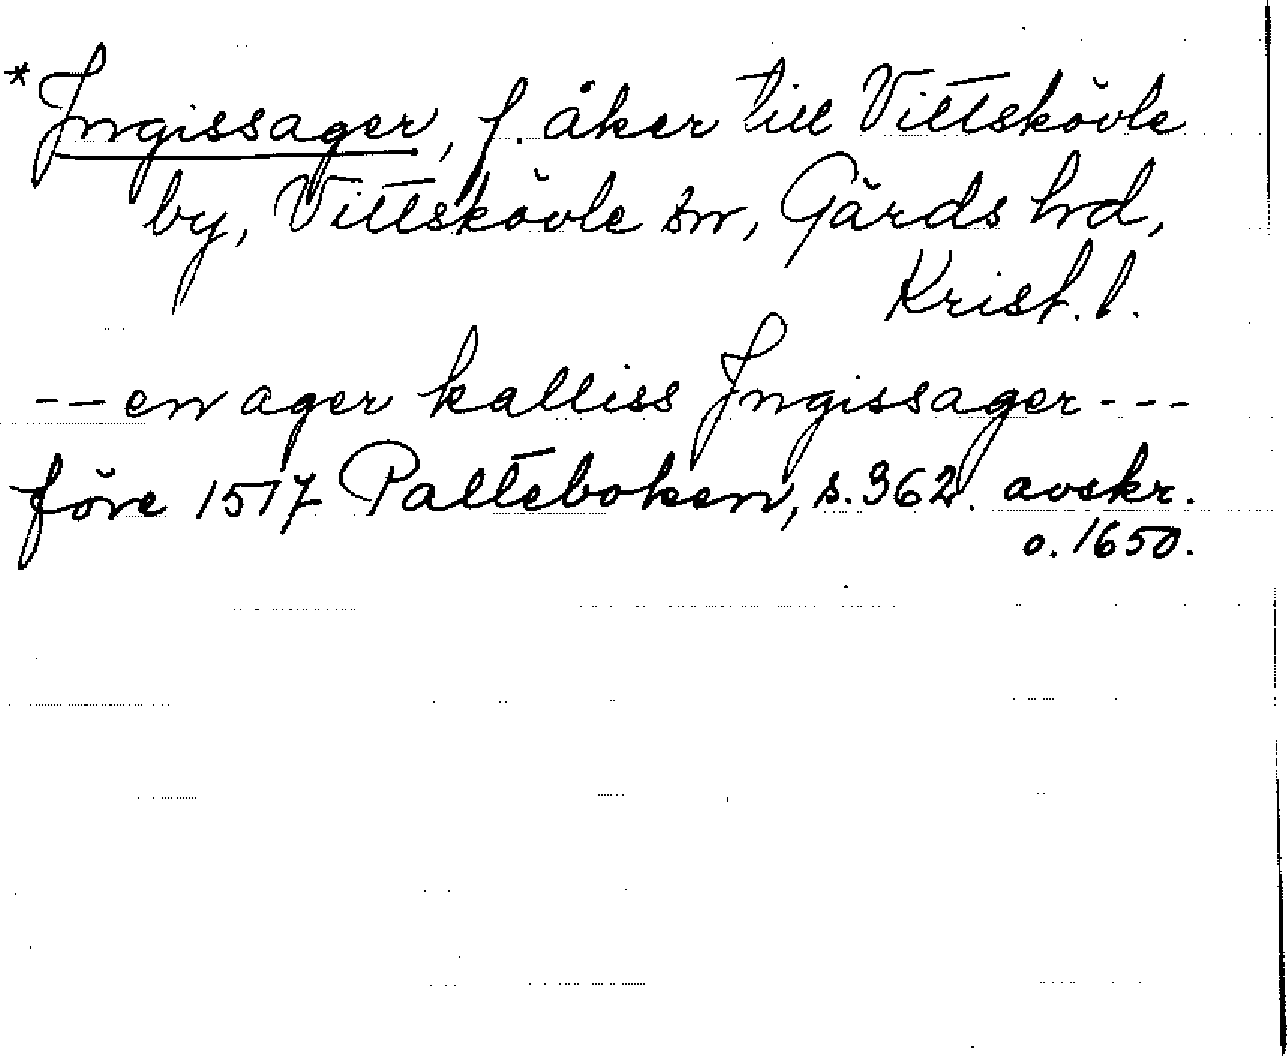 *Ingissager, f. åker till Vittskövle
by, Vittskövle sn, Gärds hd,
Krist. l.
-- en ager kalliss Ingissager ---
före 1517 Palteboken, s. 362. avskr.
o. 1650.